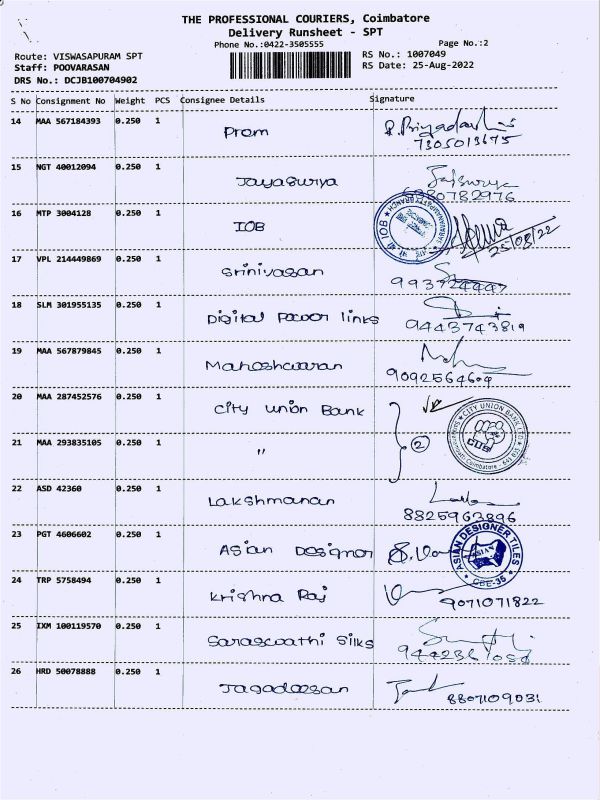 THE PROFESSIONAL COURIERS, Coimbatore
Delivery Runsheet - SPT
Phone No.:0422-3505555 Page No.:2
Route: VISWASAPURAM SPT RS No.: 1007049
Staff: POOVARASAN RS Date: 25-Aug-2022
DRS No.: DCJB100704902
S No Consignment No Weight PCS Consignee Details Signature
14 MAA 567184393 0.250 1
Prem
7305013675
15 NGT 40012094 0.250 1
Jayasuriya
6380782976
16 MTP 3004128 0.250 1
IOB
25/08/22
17 VPL 214449869 0.250 1
Srinivasan
993724447
18 SLM 301955135 0.250 1
Digital Power links
9443743819
19 MAA 567879845 0.250 1
Maheshwaran
9092564604
20 MAA 287452576 0.250 1
City Union Bank
CITY UNION BANK LTD
CUB
Coimbatore - 641 035
21 MAA 293835105 0.250 1
" 2
22 ASD 42360 0.250 1
Lakshmanan
8825963896
23 PGT 4606602 0.250 1
Asian Designer
ASIAN DESIGNER TILES
ASIAN
CBE-35
24 TRP 5758494 0.250 1
Krishna Raj
9071071822
25 IXM 100119570 0.250 1
Saraswathi Silks
26 HRD 50078888 0.250 1
Jagadeesan
8807109031